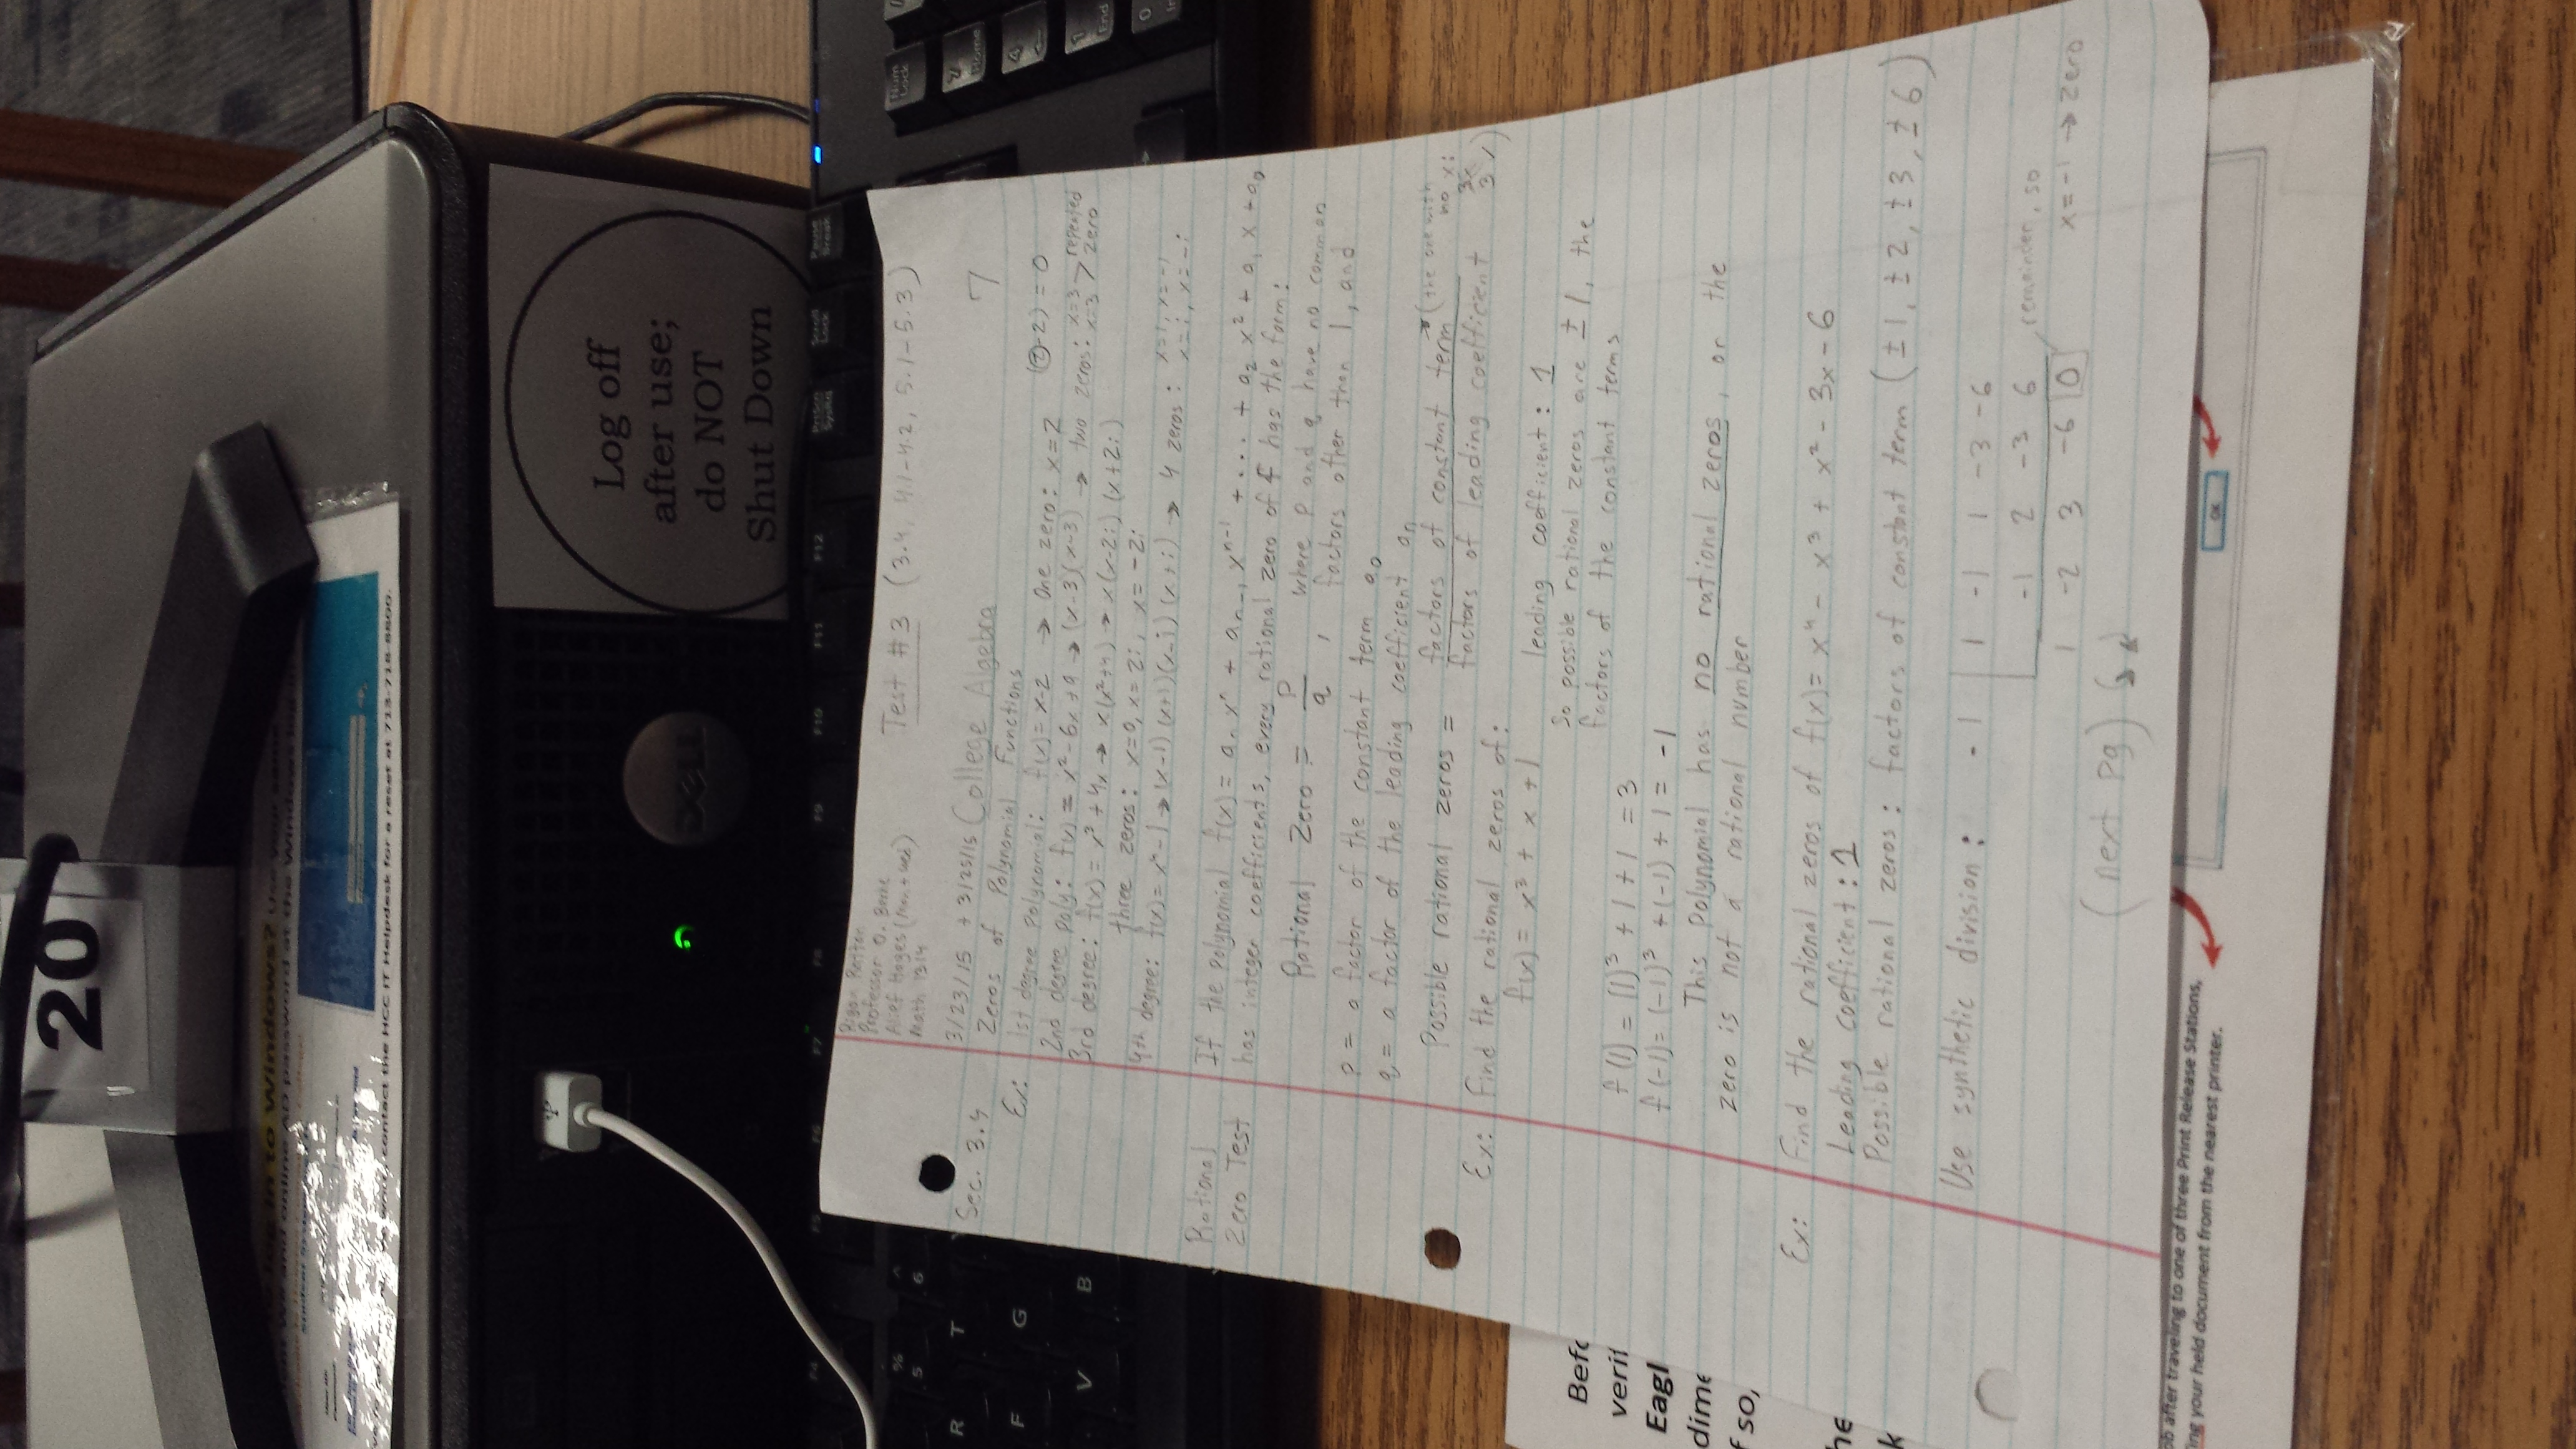 20
Log off
after use;
do NOT
Shut Down
DELL
contact the HCC IT Helpdesk for a reset at 713-718-8800.
Professor O.
Alief Hayes (Mon + Wed)
Math 1314
Test #3 (3.4, 4.1-4.2, 5.1-5.3)
3/23/15 + 3/25/15 College Algebra 7
Sec. 3.4 Zeros of Polynomial Functions
Ex: 1st degree polynomial: f(x) = x-2 → One zero: x=2 (2-2)=0
2nd degree poly: f(x) = x²-6x+9 → (x-3)(x-3) → two zeros: x=3 x=3 > repeated zero
3rd degree: f(x) = x³+4x → x(x²+4) → x(x-2i)(x+2i)
three zeros: x=0, x=2i, x=-2i
4th degree: f(x) = x⁴-1 → (x-1)(x+1)(x-i)(x+i) → 4 zeros: x=1, x=-1
x=i, x=-i
Rational If the polynomial f(x) = aₙxⁿ + aₙ₋₁xⁿ⁻¹ + ... + a₂x² + a₁x + a₀
Zero Test has integer coefficients, every rational zero of f has the form:
Rational Zero = p/q , where p and q have no common
factors other than 1, and
p = a factor of the constant term a₀
q = a factor of the leading coefficient aₙ
Possible rational zeros = factors of constant term (the one with no x:
factors of leading coefficient
Ex: Find the rational zeros of:
f(x) = x³ + x + 1 leading coefficient: 1
So possible rational zeros are ±1, the
factors of the constant terms
f(1) = (1)³ + 1 + 1 = 3
f(-1) = (-1)³ + (-1) + 1 = -1
This polynomial has no rational zeros, or the
zero is not a rational number
Ex: Find the rational zeros of f(x) = x⁴ - x³ + x² - 3x - 6
Leading coefficient: 1
Possible rational zeros: factors of constant term (±1, ±2, ±3, ±6)
Use synthetic division: -1 | 1 -1 1 -3 -6
-1 2 -3 6 remainder, so
1 -2 3 -6 0 x=-1 → zero
(next pg)
OK
after traveling to one of three Print Release Stations,
your held document from the nearest printer.
Num Lock
7 Home
4 ←
1 End
0
Pause Break
Scroll Lock
PrtScn SysRq
F12
F11
F10
F9
F8
F7
F6
F5
F4
^ 6
% 5
R
T
F
G
V
B